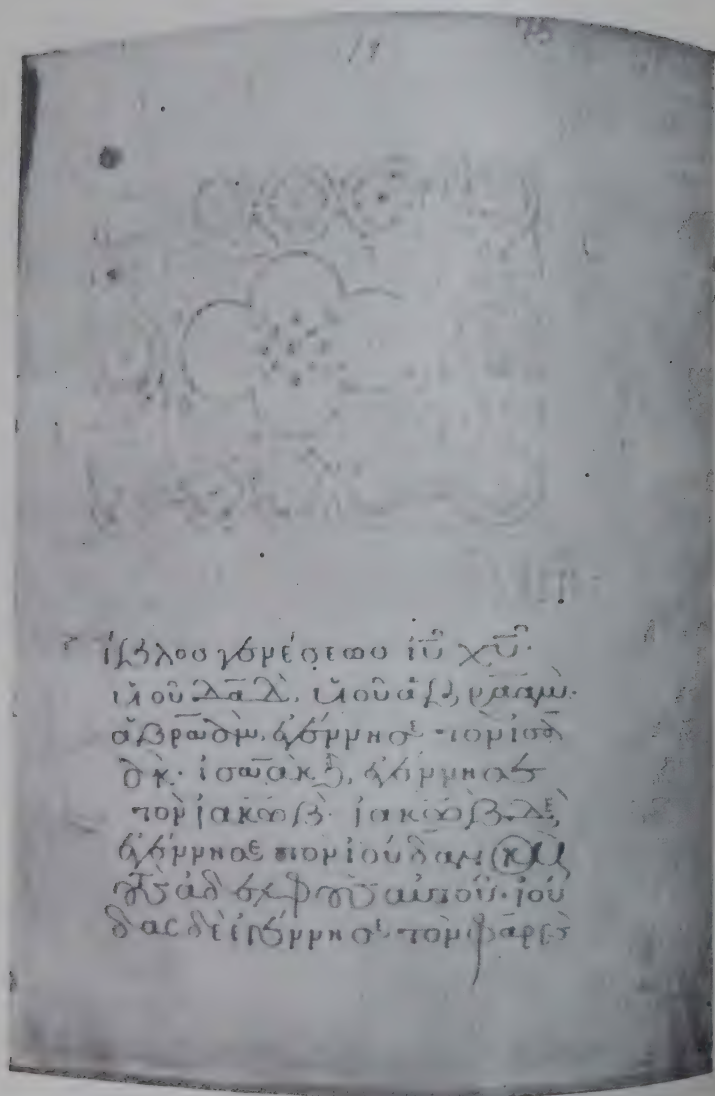 19 75
ίβλος γενέσεως ἰῡ χῡ·
υἱοῦ δᾱδ̀, υἱοῦ ἀβρᾱὰμ̀·
ἀβρᾱὰμ̀, ἐγέννησε τὸν ἰσα
ὰκ· ἰσᾱὰκ δὲ, ἐγέννησε
τὸν ἰακὼβ· ἰακὼβ δὲ,
ἐγέννησε τὸν ἰούδαν καὶ
τοὺς ἀδελφοὺς αὐτοῦ· ἰού
δας δὲ ἐγέννησε τὸν φάρες